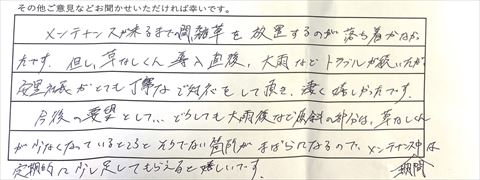 その他ご意見などお聞かせいただければ幸いです。
メンテナンスが来るまで間雑草を放置するのが落ち着かなか
たです。但し、草なしくん導入直後、大雨などトラブルが続いたが
社長がとても丁寧なご対応をして頂き、凄く嬉しかったです。
今後の要望として… どうしても大雨後など傾斜の部分は、草なしくん
が少なくなっているところとそうでない箇所がまばらになるので、メンテナンス中は
期間
定期的に少し足してもらえると嬉しいです。